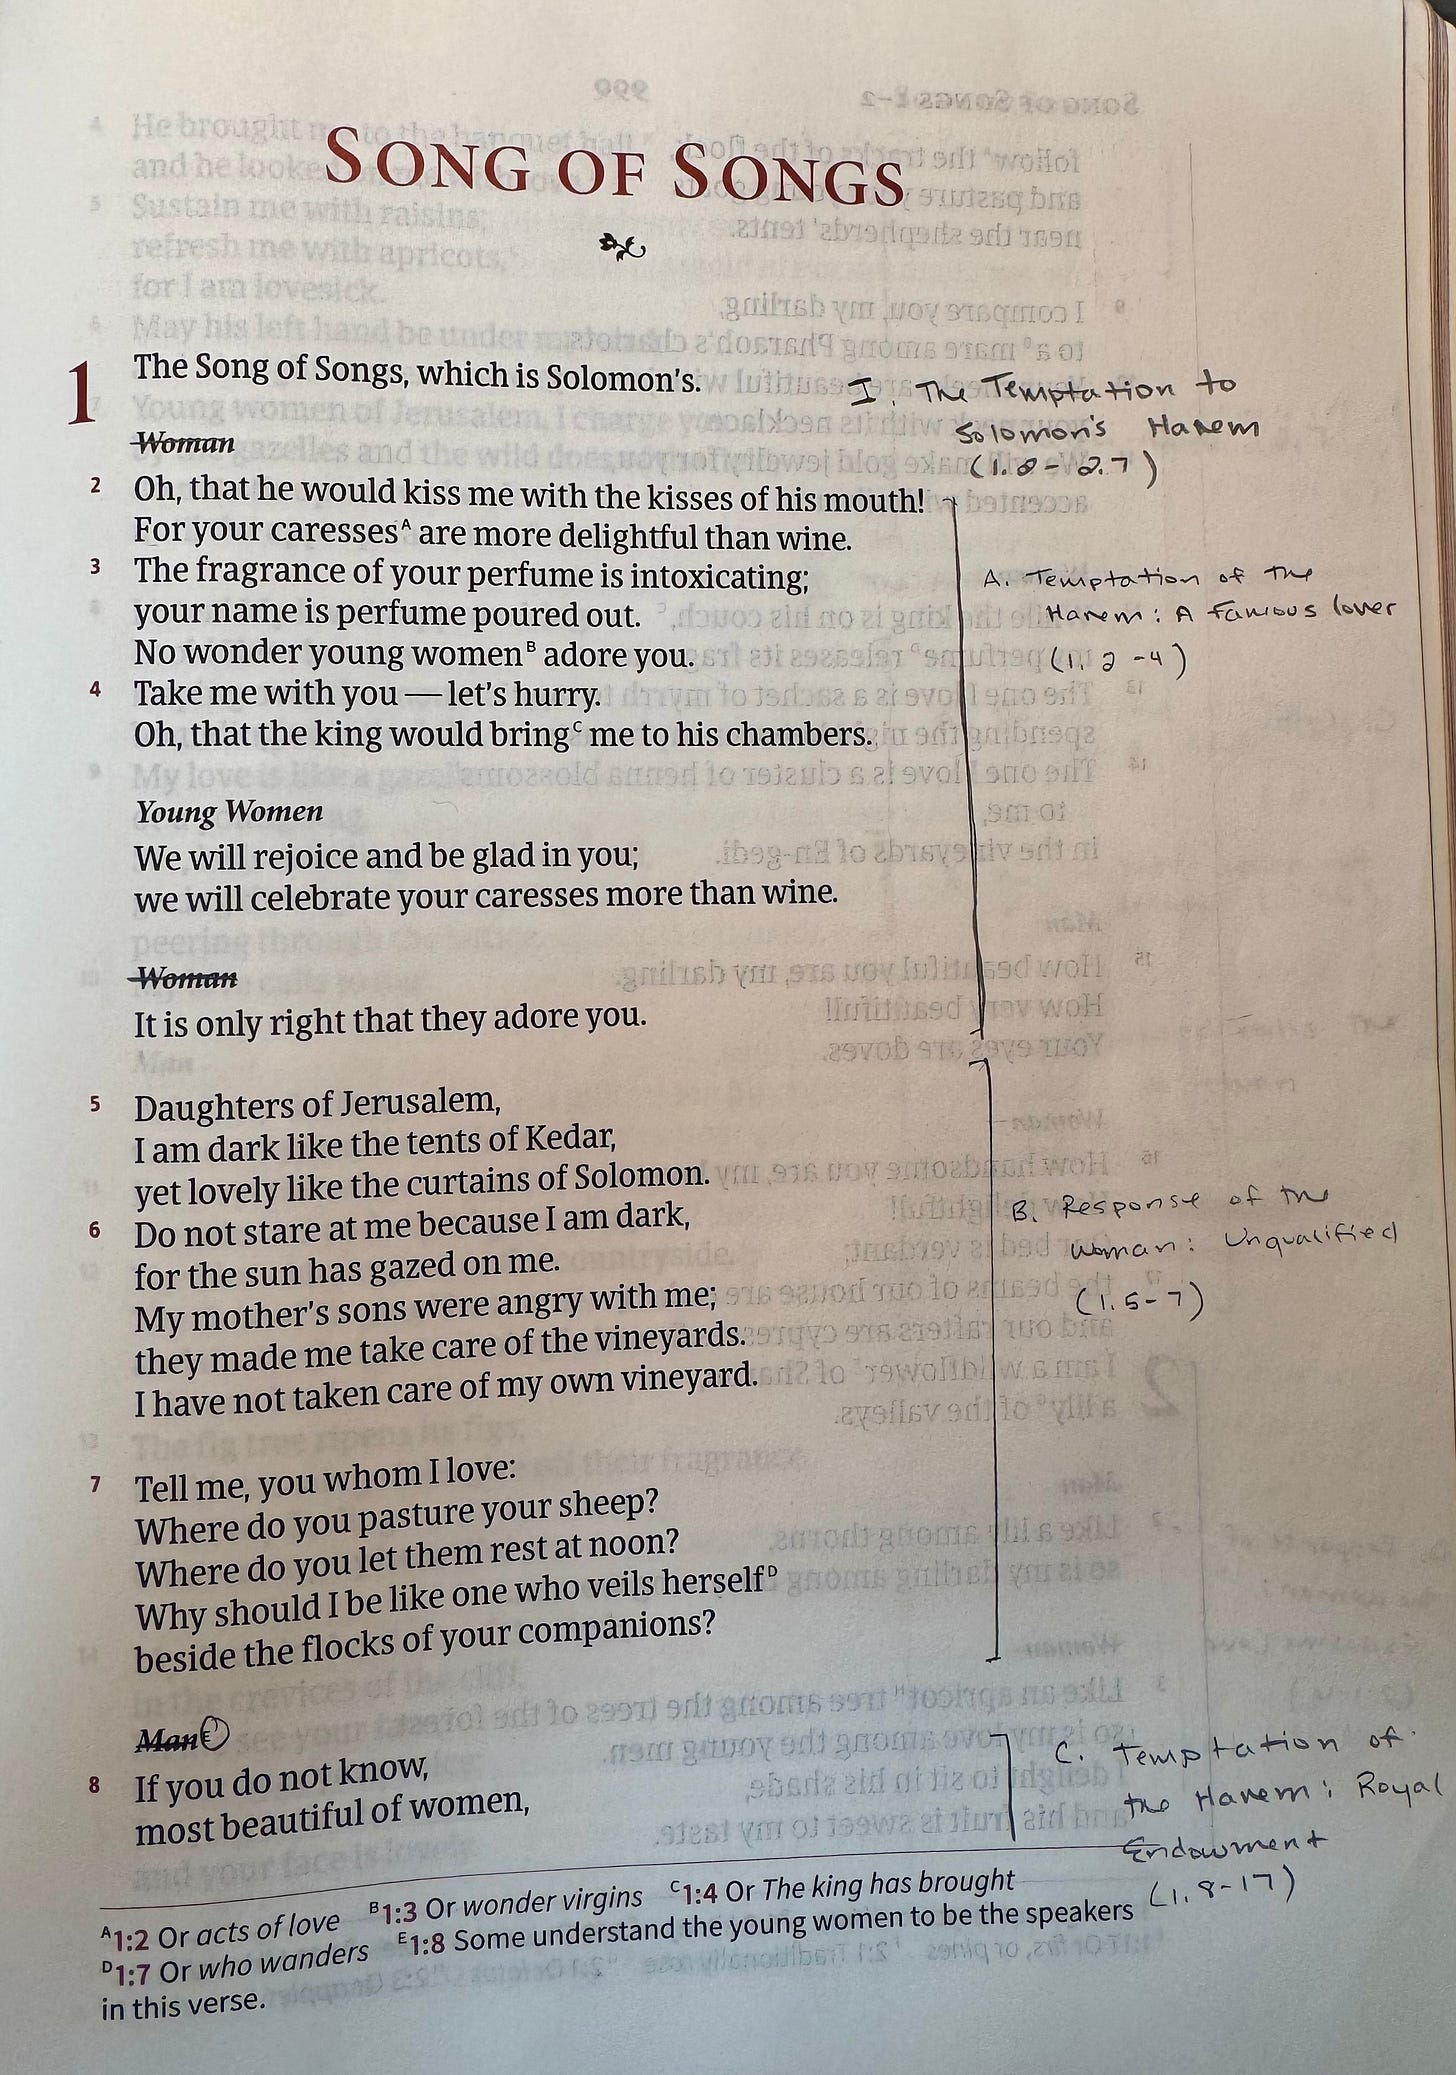 SONG OF SONGS
1 The Song of Songs, which is Solomon's.
I. The Temptation to
Solomon's Harem
(1.2-2.7)
Woman
2 Oh, that he would kiss me with the kisses of his mouth!
For your caressesᴬ are more delightful than wine.
3 The fragrance of your perfume is intoxicating;
your name is perfume poured out.
No wonder young womenᴮ adore you.
4 Take me with you — let's hurry.
Oh, that the king would bringᶜ me to his chambers.
A. Temptation of the
Harem: A famous lover
(1.2-4)
Young Women
We will rejoice and be glad in you;
we will celebrate your caresses more than wine.
Woman
It is only right that they adore you.
5 Daughters of Jerusalem,
I am dark like the tents of Kedar,
yet lovely like the curtains of Solomon.
6 Do not stare at me because I am dark,
for the sun has gazed on me.
My mother's sons were angry with me;
they made me take care of the vineyards.
I have not taken care of my own vineyard.
B. Response of the
woman: Unqualified
(1.5-7)
7 Tell me, you whom I love:
Where do you pasture your sheep?
Where do you let them rest at noon?
Why should I be like one who veils herselfᴰ
beside the flocks of your companions?
Manᴱ
8 If you do not know,
most beautiful of women,
C. Temptation of
the Harem: Royal
Endowment
(1.8-17)
ᴬ1:2 Or acts of love ᴮ1:3 Or wonder virgins ᶜ1:4 Or The king has brought
ᴰ1:7 Or who wanders ᴱ1:8 Some understand the young women to be the speakers
in this verse.